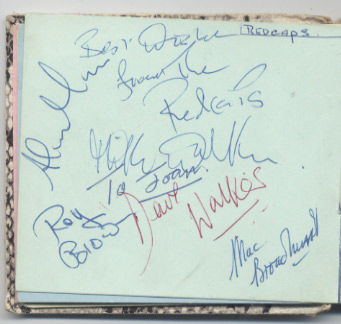 REDCAPS.
Best Wishes
from the
Redcaps
Mike Walker
To Joan
Roy
Brown
Dave
Walker
Mac
Broadhurst